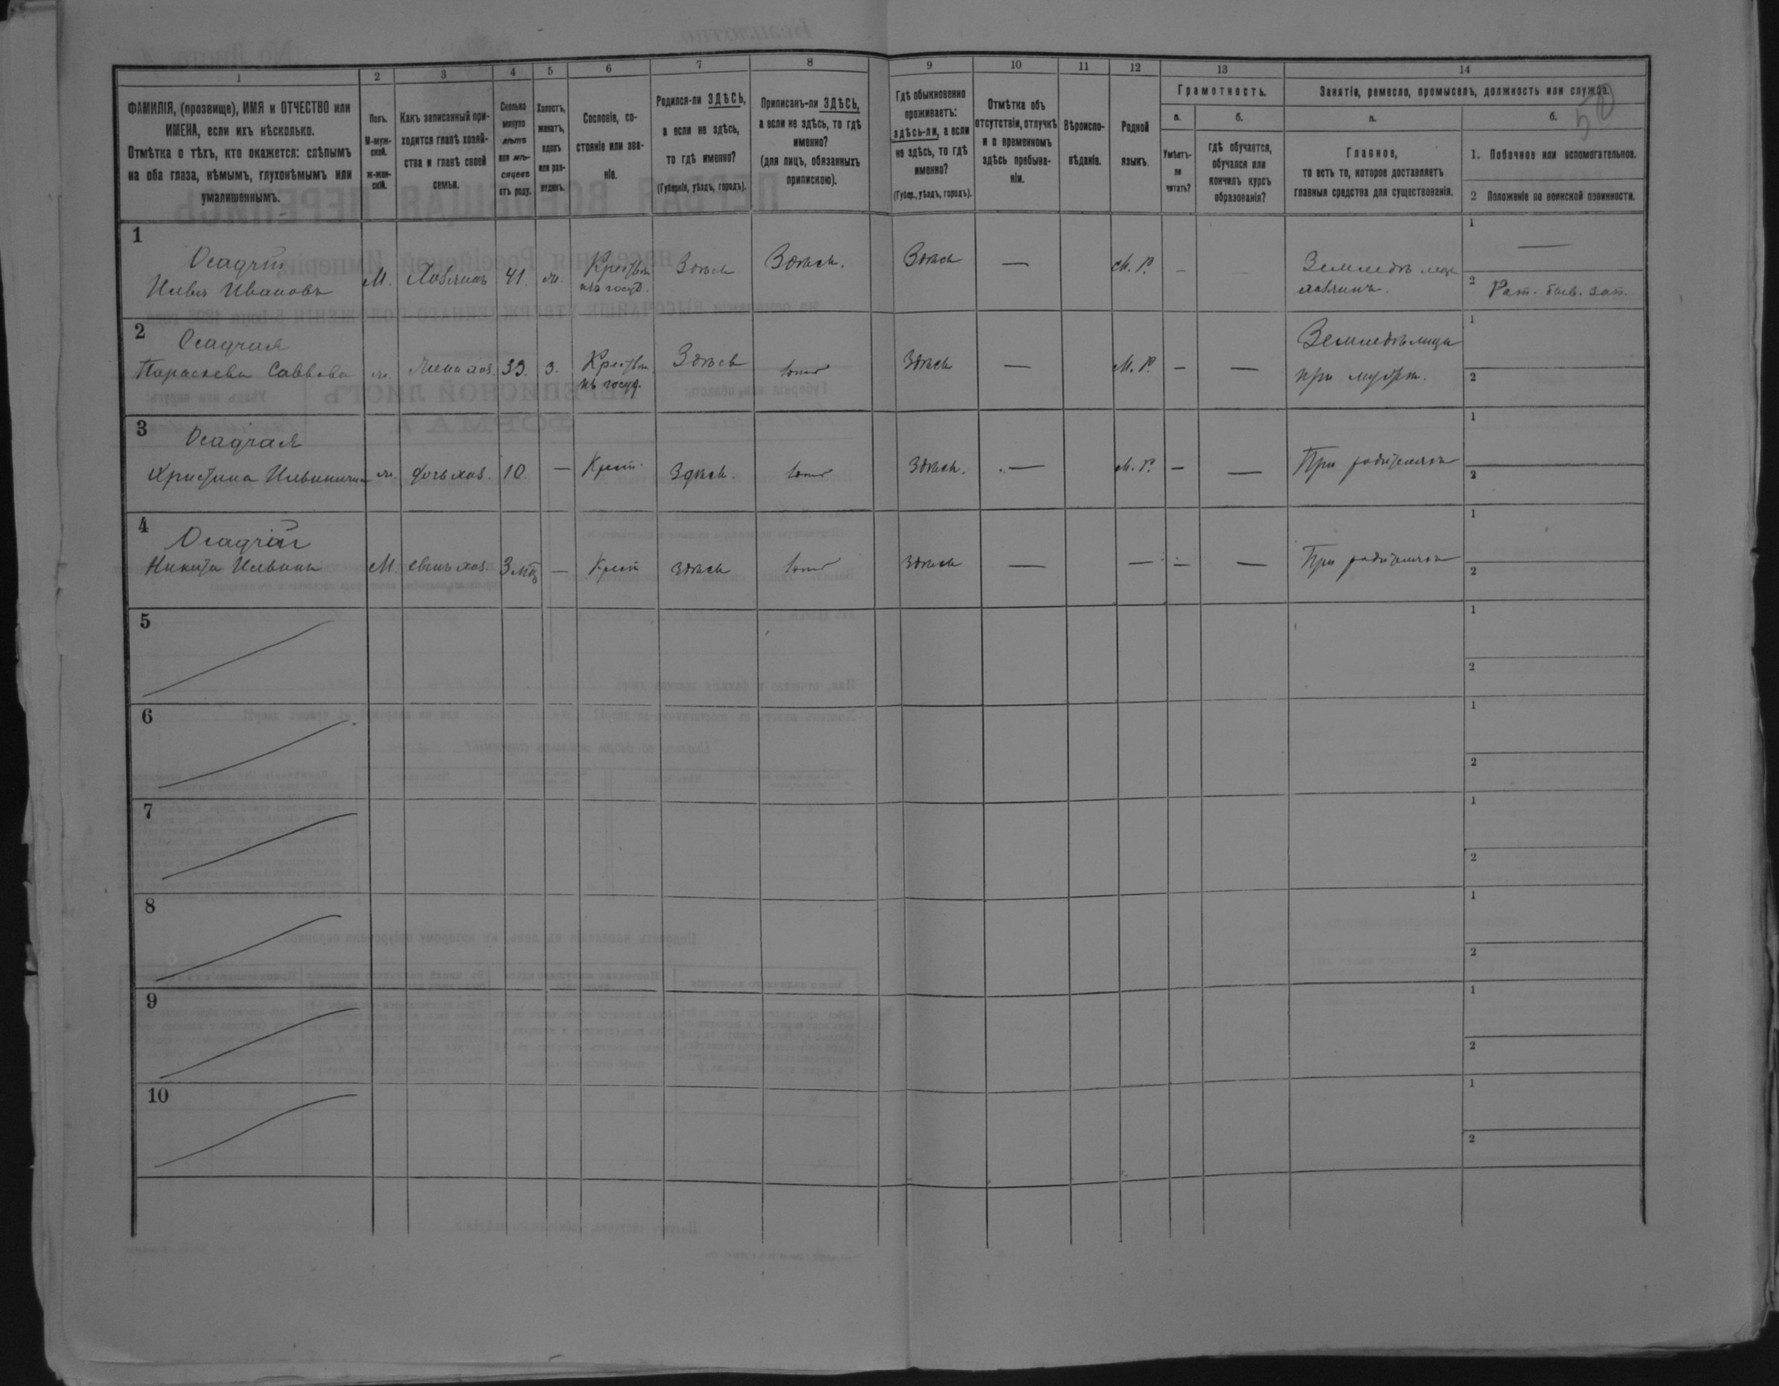 50
1
2
3
4
5
6
7
8
9
10
11
12
13
14
ФАМИЛІЯ, (прозвище), ИМЯ и ОТЧЕСТВО или
ИМЕНА, если ихъ нѣсколько.
Отмѣтка о тѣхъ, кто окажется: слѣпымъ
на оба глаза, нѣмымъ, глухонѣмымъ или
умалишеннымъ.
Полъ.
М-муж-
ской.
ж-жен-
скій.
Какъ записанный при-
ходится главѣ хозяй-
ства и главѣ своей
семьи.
Сколько
минуло
лѣтъ
или мѣ-
сяцевъ
отъ роду.
Холостъ,
женатъ,
вдовъ
или раз-
веденъ.
Сословіе, со-
стояніе или зва-
ніе.
Родился-ли ЗДѢСЬ,
а если не здѣсь,
то гдѣ именно?
(Губернія, уѣздъ, городъ).
Приписанъ-ли ЗДѢСЬ,
а если не здѣсь, то гдѣ
именно?
(для лицъ, обязанныхъ
припискою).
Гдѣ обыкновенно
проживаетъ:
здѣсь-ли, а если
не здѣсь, то гдѣ
именно?
(Губер., уѣздъ, городъ).
Отмѣтка объ
отсутствіи, отлучкѣ
и о временномъ
здѣсь пребыва-
ніи.
Вѣроиспо-
вѣданіе.
Родной
языкъ.
Грамотность.
а.
Умѣетъ-
ли
читать?
б.
гдѣ обучается,
обучался или
кончилъ курсъ
образованія?
Занятія, ремесло, промыселъ, должность или служба.
а.
Главное,
то есть то, которое доставляетъ
главныя средства для существованія.
б.
1. Побочное или вспомогательное.
2 Положеніе по воинской повинности.
1
Осадчій
Илья Ивановъ
М.
Хозяинъ
41.
ж.
Крестьян
изъ госуд.
Здѣсь
Здѣсь.
Здѣсь
—
М. Р.
—
Земледѣлецъ
хозяинъ.
1
—
2
Рат. быв. зап.
2
Осадчая
Параскева Саввова
ж.
Жена хоз.
33.
З.
Крестьян
изъ госуд.
Здѣсь
тоже
Здѣсь
—
М. Р.
—
—
Земледѣлица
при мужѣ.
1
2
3
Осадчая
Христина Ильинична
ж.
дочь хоз.
10.
—
Крест.
Здѣсь.
тоже
Здѣсь.
—
М. Р.
—
—
При родителяхъ
1
2
4
Осадчій
Никита Ильинъ
М.
сынъ хоз.
3 мц
—
Крест
здѣсь
тоже
здѣсь
—
—
—
—
При родителяхъ
1
2
5
1
2
6
1
2
7
1
2
8
1
2
9
1
2
10
1
2